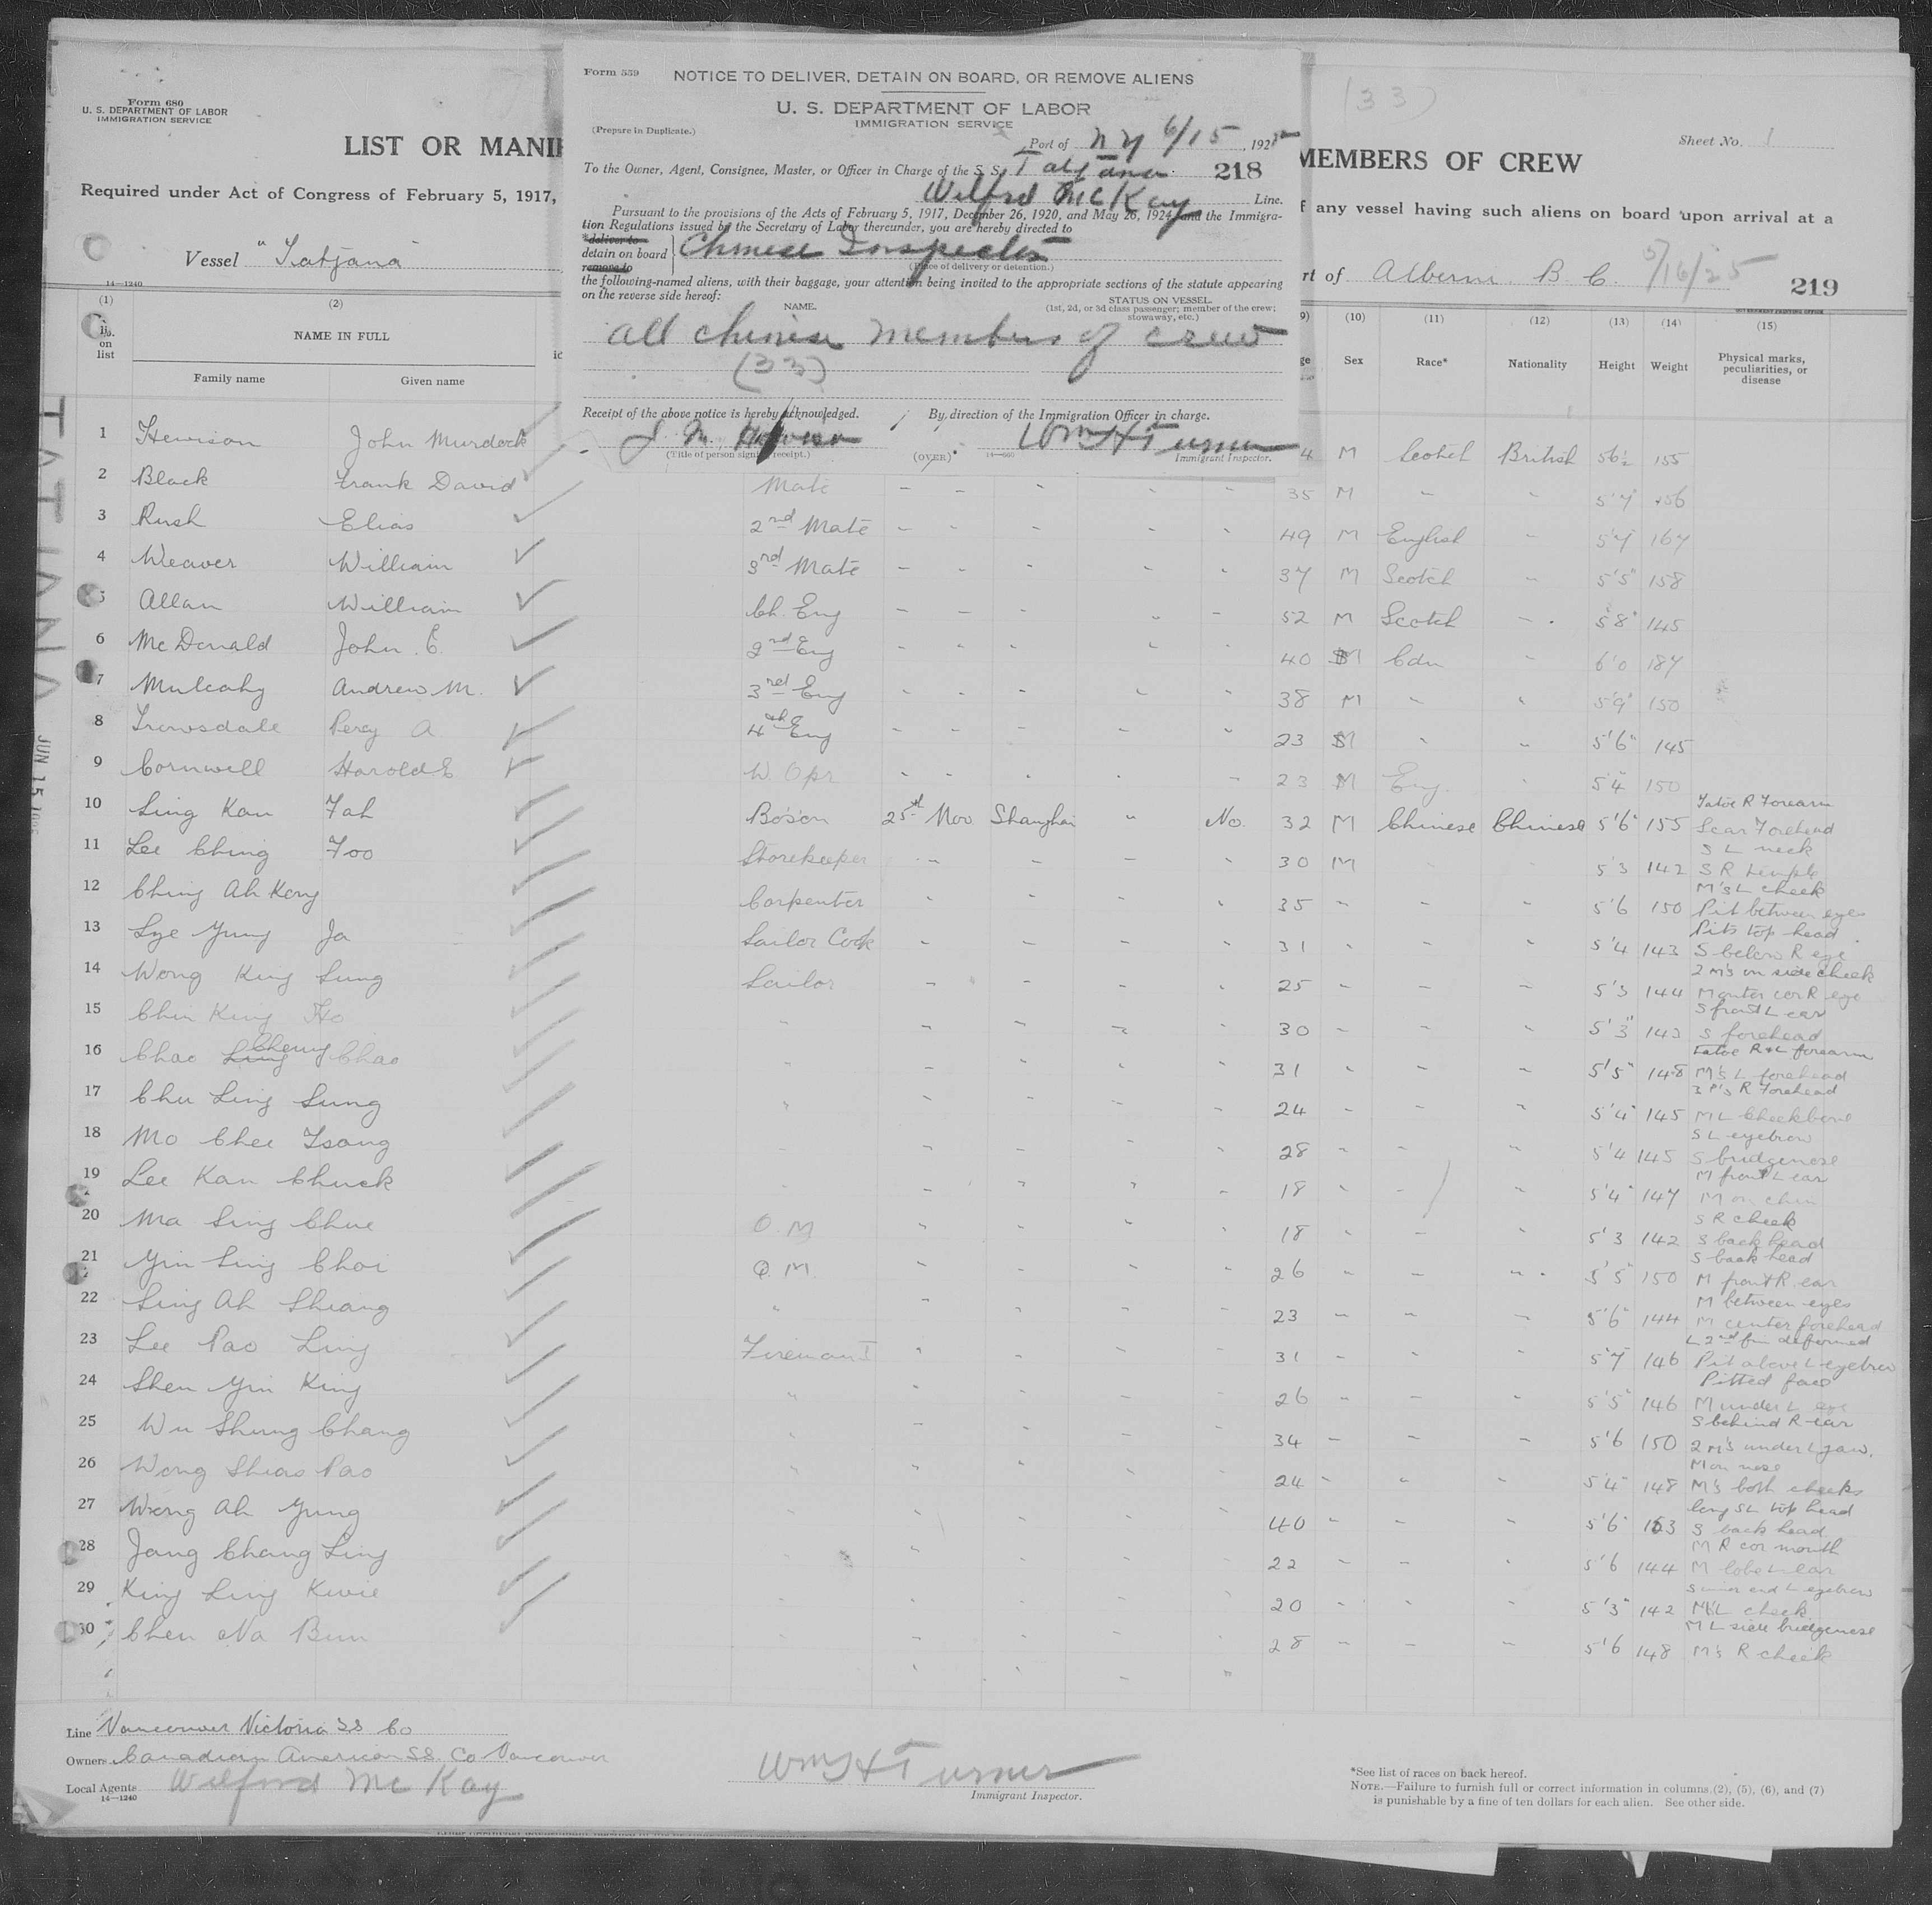 Form 680
U. S. DEPARTMENT OF LABOR
IMMIGRATION SERVICE
LIST OR MANI
Required under Act of Congress of February 5, 1917,
Vessel "Tatjana"
14—1240
Form 559
NOTICE TO DELIVER, DETAIN ON BOARD, OR REMOVE ALIENS
U. S. DEPARTMENT OF LABOR
IMMIGRATION SERVICE
(Prepare in Duplicate.)
Port of N Y 6/15, 1925
To the Owner, Agent, Consignee, Master, or Officer in Charge of the S. S. Tatjana 218
Wilfrd McKay Line.
Pursuant to the provisions of the Acts of February 5, 1917, December 26, 1920, and May 26, 1924, and the Immigra-
tion Regulations issued by the Secretary of Labor thereunder, you are hereby directed to
*deliver to
detain on board Chinese Inspector
remove to
(Place of delivery or detention.)
the following-named aliens, with their baggage, your attention being invited to the appropriate sections of the statute appearing
on the reverse side hereof:
NAME. STATUS ON VESSEL.
(1st, 2d, or 3d class passenger; member of the crew;
stowaway, etc.)
all chinese members of crew
(33)
Receipt of the above notice is hereby acknowledged. By direction of the Immigration Officer in charge.
J. M. Hewison Wm H Turner
(Title of person signing receipt.) (OVER) Immigrant Inspector.
(33)
Sheet No. 1
MEMBERS OF CREW
f any vessel having such aliens on board upon arrival at a
rt of Alberni B C. 5/16/25 219
(1) (2) (10) (11) (12) (13) (14) (15)
No. on list NAME IN FULL Sex Race* Nationality Height Weight Physical marks, peculiarities, or disease
Family name Given name
TATJANA
JUN 15
1 Hewison John Murdock 4 M Scotch British 5 6½ 155
2 Black Frank David Mate 35 M " " 5'7" 156
3 Rush Elias 2nd Mate 49 M English " 5'7 167
4 Weaver William 3rd Mate 37 M Scotch " 5'5" 158
5 Allan William Ch. Eng 52 M Scotch " 5'8" 145
6 McDonald John E. 2nd Eng 40 M Cdn " 6'0 187
7 Mulcahy Andrew M. 3rd Eng 38 M " " 5'9" 150
8 Trowsdale Percy A 4th Eng 23 M " " 5'6" 145
9 Cornwell Harold E W. Opr 23 M Eng. " 5'4" 150
10 Ling Kan Fah Bo's'n 25th Nov Shanghai " No. 32 M Chinese Chinese 5'6" 155 Tatoe R Forearm Scar Forehead
11 Lee Ching Foo Storekeeper 30 M 5'3 142 S L neck S R temple
12 Ching Ah Kong Carpenter 35 5'6 150 M's L cheek Pit between eyes
13 Lye Yung Ja Sailor Cook 31 5'4 143 Pits top head S below R eye
14 Wong King Sung Sailor 25 5'3 144 2 M's on side cheek M outer cor R eye
15 Chin King Ho " 30 5'3" 143 S front L ear S forehead
16 Chao Ling Cheung Chao " 31 5'5" 148 Tatoe R & L forearm M's L forehead
17 Chu Ling Sung " 24 5'4" 145 3 P's R Forehead M L Cheekbone
18 Mo Chee Tsang " 28 5'4 145 S L eyebrow S bridgenose
19 Lee Kan Chuck " 18 5'4" 147 M front L ear M on chin
20 Ma Sing Chue O. M 18 5'3 142 S R cheek S back head
21 Yin Sing Choi Q. M. 26 5'5" 150 S back head M front R. ear
22 Sing Ah Shiang " 23 5'6" 144 M between eyes M center forehead
23 Lee Pao Ling Fireman 31 5'7" 146 L 2nd fin deformed Pit above L eyebrow
24 Shen Yin King " 26 5'5" 146 Pitted face M under L eye
25 Wu Shung Chang " 34 5'6 150 S behind R ear 2 M's under L jaw.
26 Wong Shiao Pao " 24 5'4" 148 M on nose M's both cheeks
27 Wong Ah Yung " 40 5'6" 153 long S L top head S back head
28 Jang Chang Ling 22 5'6 144 M R cor mouth M lobe L ear
29 King Ling Kwie 20 5'3" 142 S inner end L eyebrow M L cheek
30 Chen Na Bun 28 5'6 148 M L side bridgenose M's R cheek
Line Vancouver Victoria SS Co
Owners Canadian American SS. Co Vancouver
Local Agents Wilford Mc Kay
14—1240
Wm H Turner
Immigrant Inspector.
*See list of races on back hereof.
NOTE.—Failure to furnish full or correct information in columns (2), (5), (6), and (7)
is punishable by a fine of ten dollars for each alien. See other side.